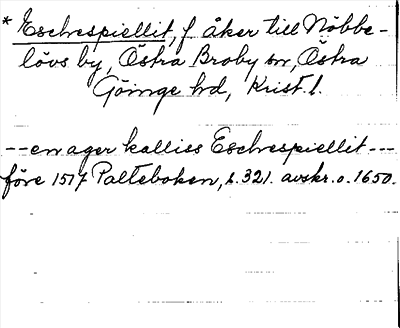 * Eschrespiellit, f. åker till Nöbbe-
lövs by, Östra Broby sn, Östra
Göinge hd, Krist. l.
-- en ager kalliss Eschrespiellit ---
före 1517 Palteboken, s. 321. avskr. o. 1650.